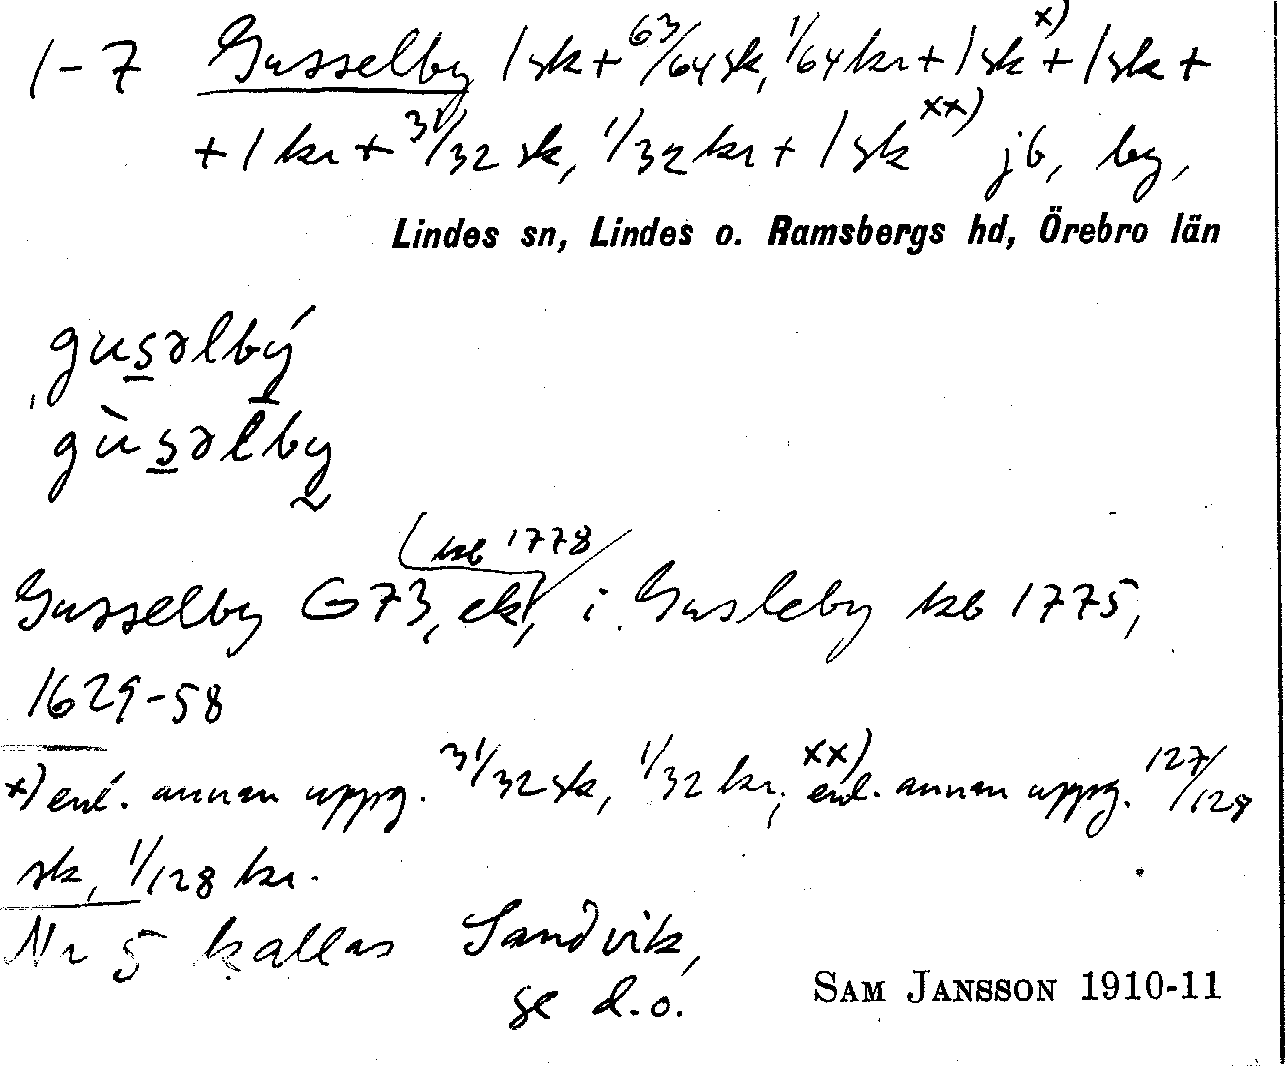 1-7 Gusselby 1 sk + 63/64 sk, 1/64 kr + 1 sk x) + 1 sk +
+ 1 kr + 31/32 sk, 1/32 kr + 1 sk xx) jb, by,
Lindes sn, Lindes o. Ramsbergs hd, Örebro län
gusəlbý
gùsəlby
(kb 1778
Gusselby G73, ek, i Gusleby kb 1775,
1629-58
x) enl. annan uppg. 31/32 sk, 1/32 kr; xx) enl. annan uppg. 127/128
sk, 1/128 kr.
Nr 5 kallas Sandvik,
se d.o.
SAM JANSSON 1910-11